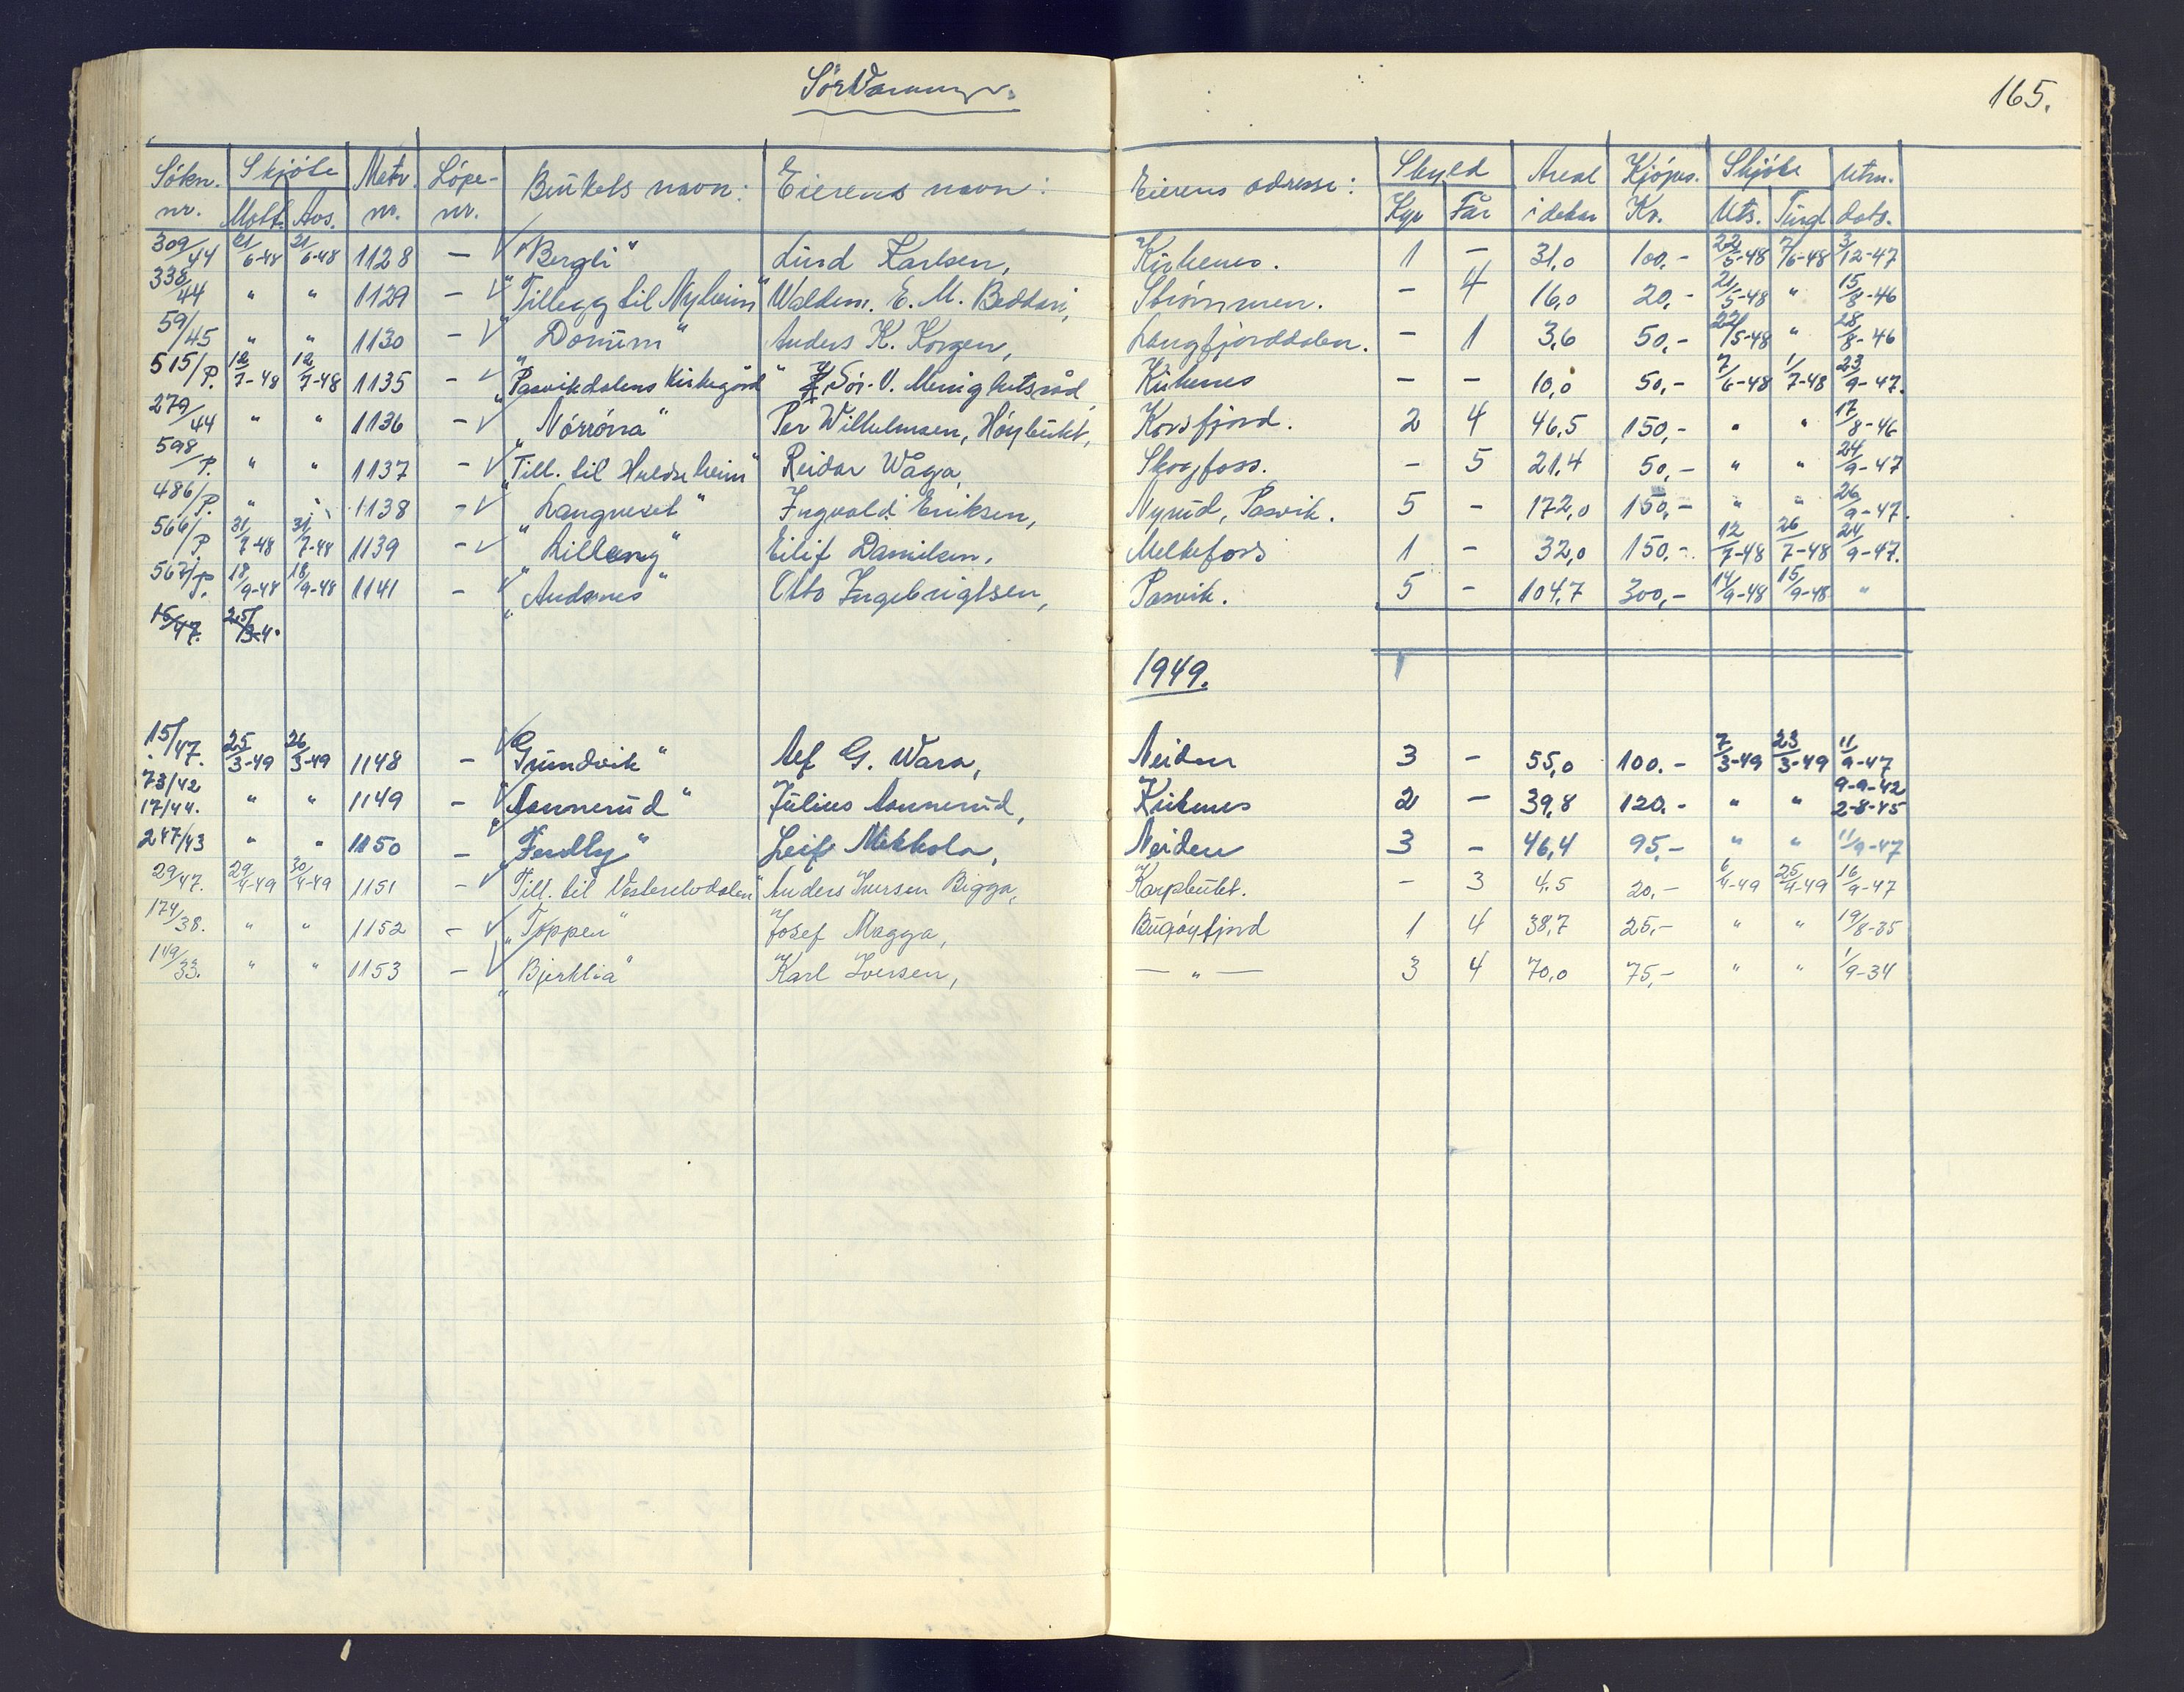 SörVaranger.
165.
Sökn. nr. Skjöte Mott. Avs. Matr. nr. Löpe- nr. Brukets navn: Eierens navn: Eierens adresse: Skyld Kyr Får Areal i dekar Kjöpes. Kr. Skjöte Uts. Tingl. Utm. dato.
309/44 21/6-48 21/6-48 1128 - "Bergli" Lind Karlsen, Kirkenes. 1 - 31,0 100,- 22/5-48 7/6-48 3/12-47
338/44 " " 1129 - "Tillegg til Nyheim" Waldem. E. M. Beddari, Strömmen. - 4 16,0 20,- 21/5-48 " 15/8-46
59/45 " " 1130 - "Domum" Anders K. Korgen, Langfjorddalen. - 1 3,6 50,- 22/5-48 " 28/8-46
515/P. 12/7-48 12/7-48 1135 - "Pasvikdalens Kirkegård" Sör-V. Menighetsråd, Kirkenes - - 10,0 50,- 7/6-48 1/7-48 23/9-47.
279/44 " " 1136 - "Nórróna" Per Wilhelmsen, Höybukt, Korsfjord. 2 4 46,5 150,- " " 17/8-46
598/P. " " 1137 - "Till. til Huldreheim" Reidar Wåga, Skogfoss. - 5 21,4 50,- " " 24/9-47
486/P. " " 1138 - "Langneset" Ingvald Eriksen, Nyrud, Pasvik. 5 - 172,0 150,- " " 26/9-47.
566/P 31/7-48 31/7-48 1139 - "Lilleng" Eilif Danielsen, Melkefoss 1 - 32,0 150.- 12/7-48 26/7-48 24/9-47.
567/P. 18/9-48 18/9-48 1141 - "Andsnes" Otto Ingebrigtsen, Pasvik. 5 - 104,7 300,- 14/9-48 15/9-48 "
15/47. 25/3-4
1949.
15/47. 25/3-49 26/3-49 1148 - "Grundvik" Alf G. Wara, Neiden 3 - 55,0 100.- 7/3-49 23/3-49 11/9-47
73/42 17/44. " " 1149 - "Aannerud" Julius Aannerud, Kirkenes 2 - 39,8 120.- " " 9-9-42 2-8-45
247/43 " " 1150 - "Ferdly" Leif Mekkola, Neiden 3 - 46,4 95,- " " 11/9-47
29/47. 29/4-49 30/4-49 1151 - "Till. til Vesterelvdalen" Anders Iversen Bigga, Karpbukt. - 3 4,5 20,- 6/4-49 25/4-49 16/9-47
174/38. " " 1152 - "Toppen" Josef Magga, Bugöyfjord 1 4 38,7 25,- " " 19/8-35
119/33. " " 1153 - "Bjerklia" Karl Iversen, — " — 3 4 70,0 75,- " " 1/9-34